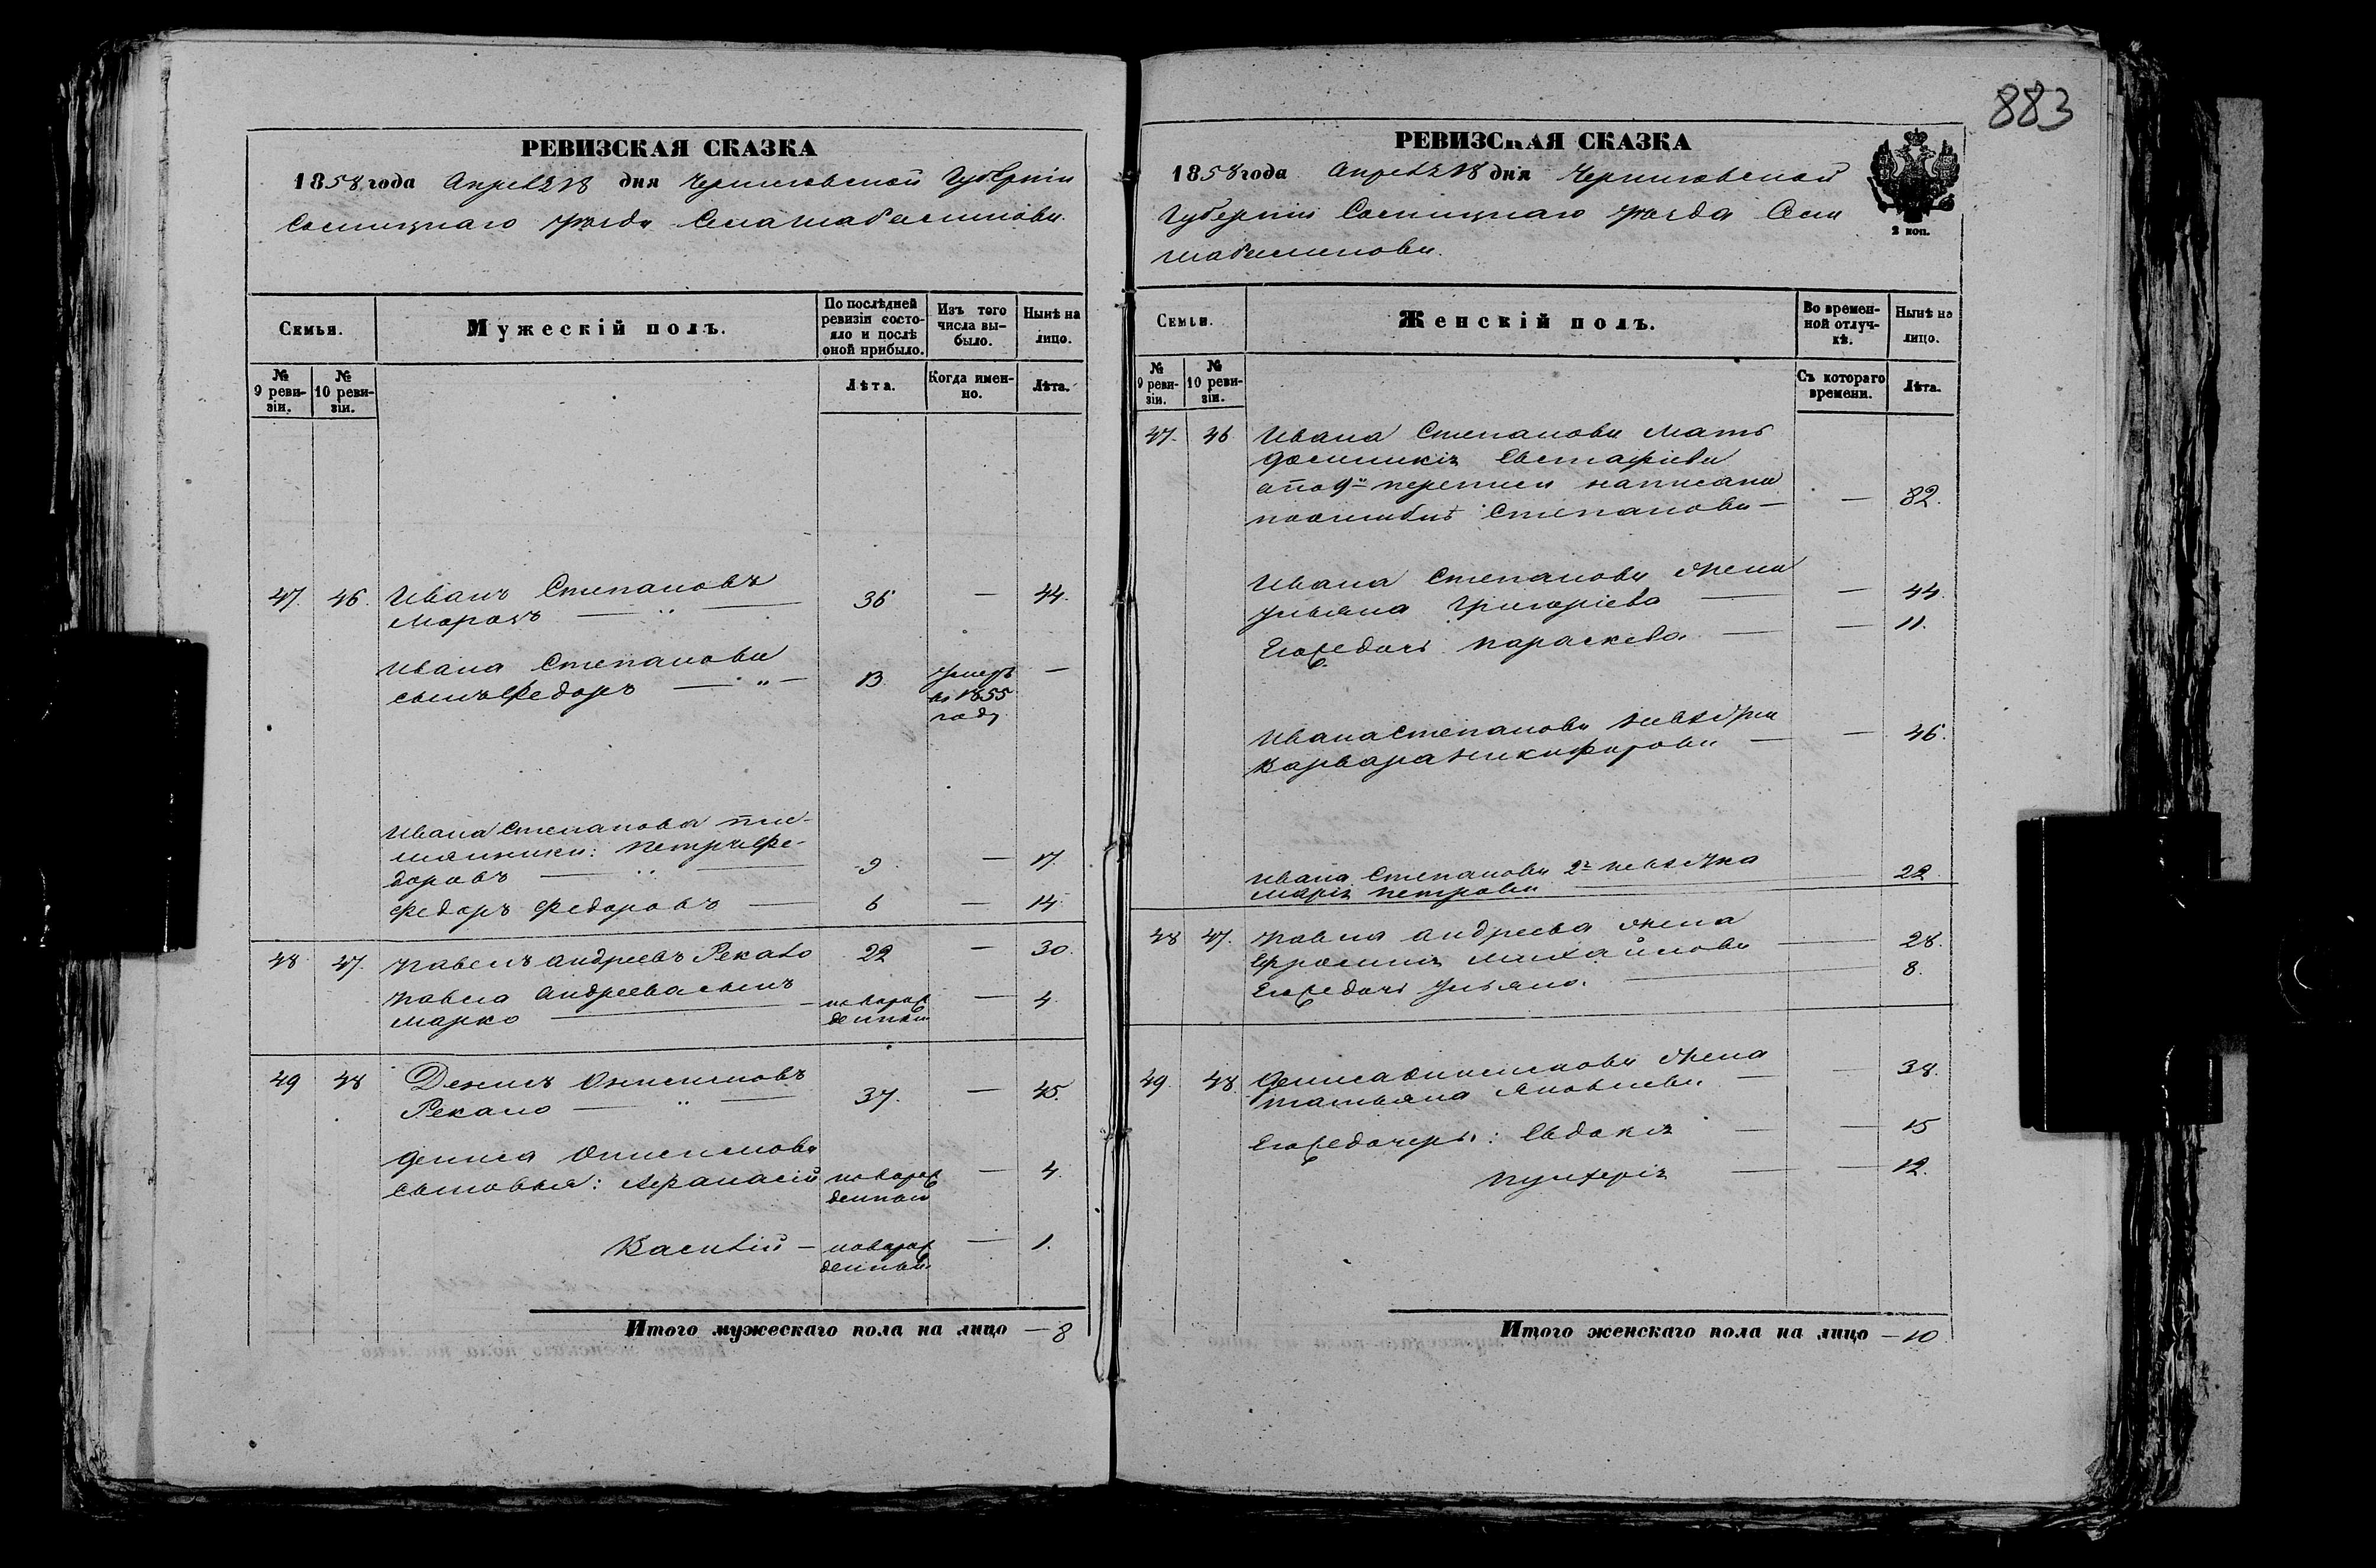 883
РЕВИЗСКАЯ СКАЗКА
1858 года Апреля 18 дня Черниговской Губерніи
Сосницкаго уезда Села Шабалинова.
Семьи.
Мужескій полъ.
По послѣдней ревизіи состо-
яло и послѣ оной прибыло.
Изъ того числа вы-
было.
Нынѣ на лицо.
№ 9 реви-
зіи.
№ 10 реви-
зіи.
Лѣта.
Когда имен-
но.
Лѣта.
47. 46. Иванъ Степановъ
Морозъ — " — 36 — 44.
Ивана Степанова
сынъ Федоръ — " — 13 умеръ — 
въ 1855
году
Ивана Степанова пле-
мянники: Петръ Фе-
доровъ — " — 9 — 17.
Федоръ Федоровъ — 6 — 14.
48 47. Павелъ Андреевъ Рекало 22 — 30.
Павла Андреева сынъ
Марко — новорож
денный — 4.
49 48 Денисъ Онисимовъ
Рекало — " — 37. — 45.
Дениса Онисимова
сыновья: Афанасій новорож
денный — 4.
Василій — новорож
денный — 1.
Итого мужескаго пола на лицо — 8
РЕВИЗСКАЯ СКАЗКА
1858 года Апреля 18 дня Черниговской
Губерніи Сосницкаго уезда Села
Шабалинова.
2 коп.
Семьи.
Женскій полъ.
Во времен-
ной отлуч-
кѣ.
Нынѣ на лицо.
№ 9 реви-
зіи.
№ 10 реви-
зіи.
Съ котораго
времени.
Лѣта.
47. 46. Ивана Степанова мать
Евстафіева
а по 9й переписи написана
по ошибке Степанова — — 82.
Ивана Степанова жена
Ульяна Григоріева — — 44.
Его же дочь Параскева. — — 11.
Ивана Степанова невестка
Варвара Никифорова — — 46.
Ивана Степанова 2я невестка
Марія Петрова — 22.
48 47. Павла Андреева жена
Ефросинія Михайлова — 28.
Его же дочь Ульяна. — 8.
49. 48 Дениса Онисимова жена
Татьяна Яковлева — — 38.
Его же дочери: Евдокія — — 15
Пулхерія — — 12.
Итого женскаго пола на лицо — 10